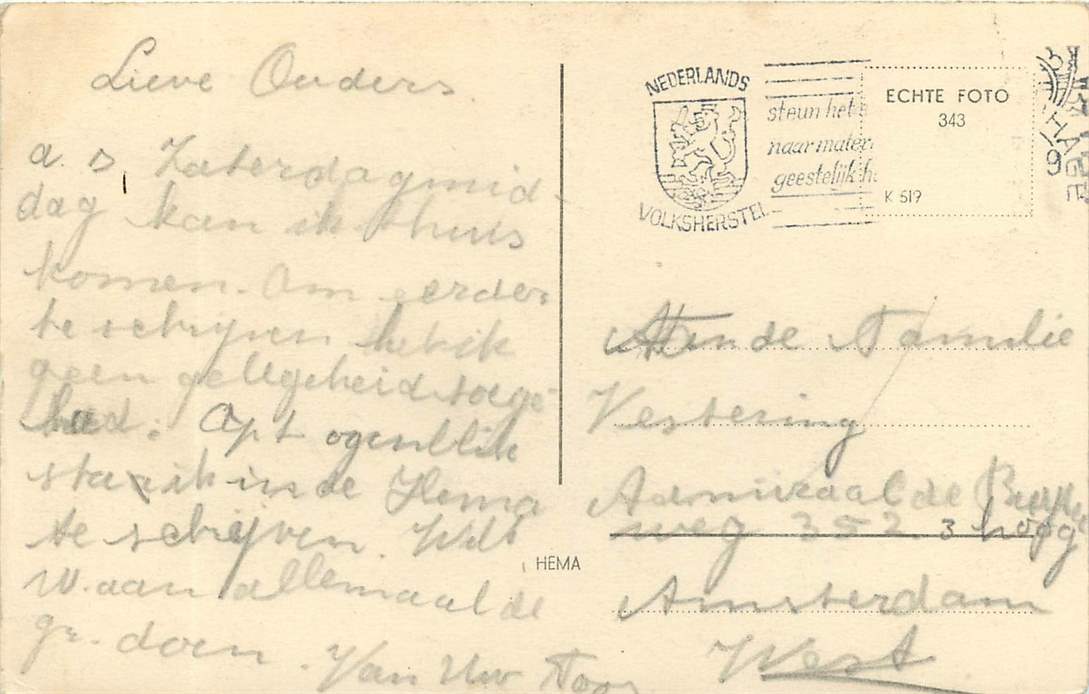 Lieve Ouders.
a.s. Zaterdagmid-
dag kan ik thuis
komen. Om eerder
te schrijven heb ik
geen gelegeheid toege-
had. Op't ogenblik
sta ik in de Hema
te schrijven. Wilt
U. aan allemaal de
gr. doen. Van Uw
NEDERLANDS
VOLKSHERSTEL
steun het
naar mater
geestelijk h
ECHTE FOTO
343
K 519
HAGE
9
HEMA
Aan de Familie
Vestering
Admiraal de Ruyter
weg 352 3 hoog
Amsterdam
West